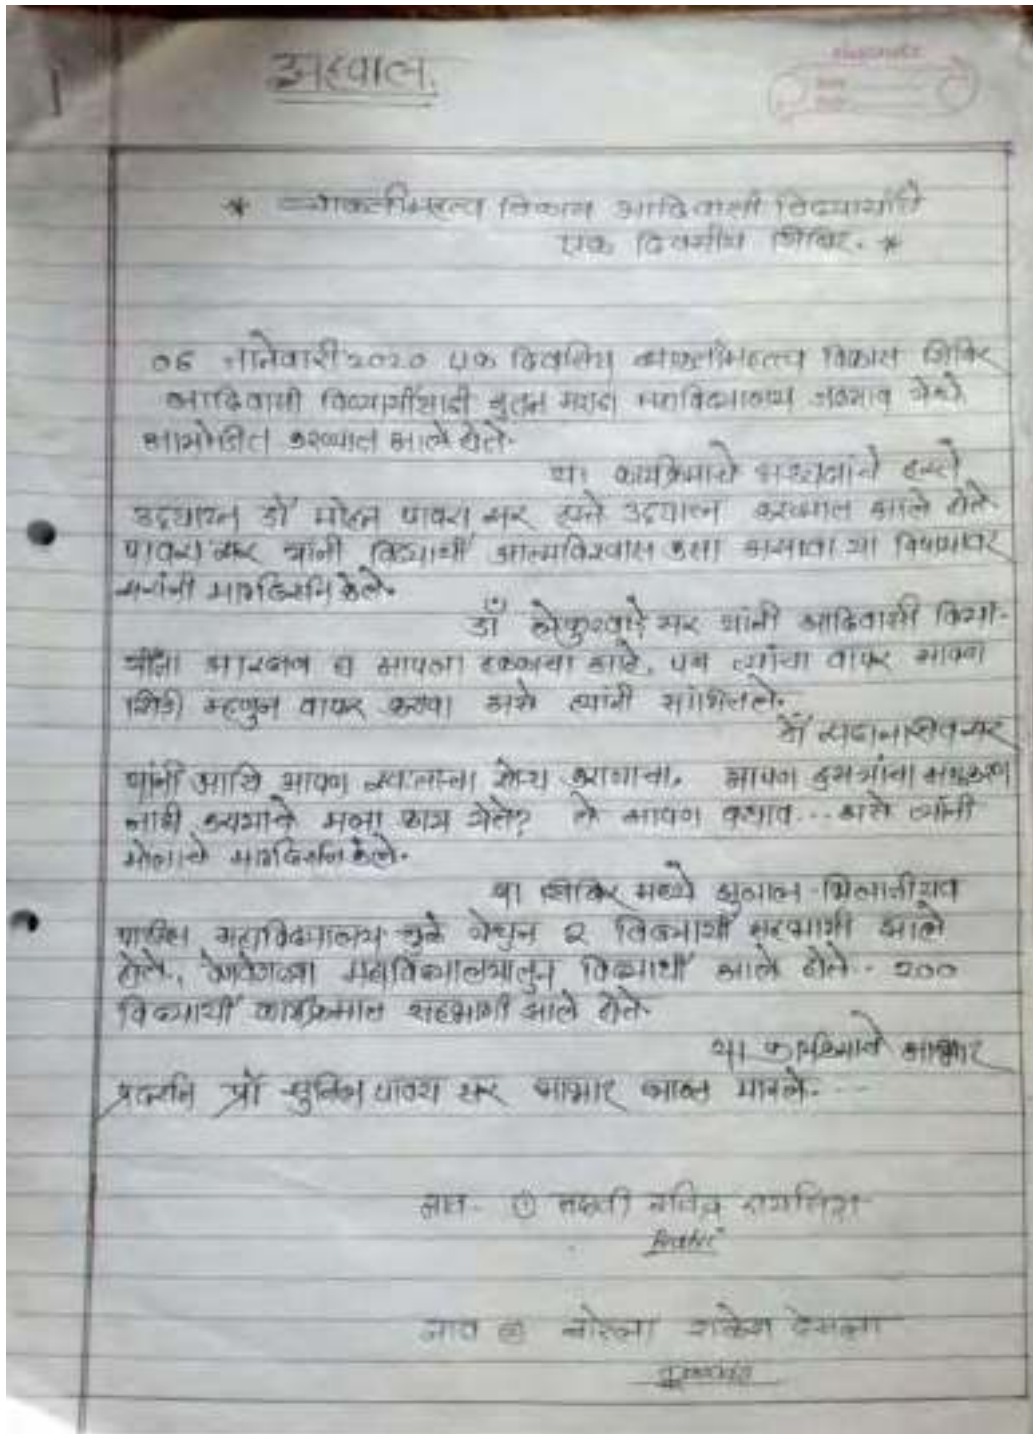 अहवाल.
* व्यक्तीमहत्व विकास आदिवासी विद्यार्थीचे
एक दिवसीय शिबिर. *
06 जानेवारी 2020 एक दिवसिय व्यक्तीमहत्व विकास शिबिर
आदिवासी विद्यार्थीसाठी नुतन मराठा महाविद्यालय जळगाव येथे
आयोजित करण्यात आले होते.
या कार्यक्रमाचे अध्यक्षांचे हस्ते
उद्घाटन डॉ मोहन पावरा सर हस्ते उद्घाटन करण्यात आले होते
पावरा सर यांनी विद्यार्थी आत्मविश्वास कसा असावा या विषयावर
सरांनी मार्गदर्शन केले.
डॉ सर यांनी आदिवासी विद्या-
र्थीना आरक्षण हा आपला हक्काचा आहे. पण त्यांचा वापर आपण
शिडी म्हणुन वापर करावा असे त्यांनी सांगितले.
डॉ सर
यांनी आधि आपण स्वःताचा शोध आपण दुसऱ्यांचा
नाही मला काय येते? ते आपण असे त्यांनी
मोलाचे मार्गदर्शन केले.
या शिबिर मध्ये
पाटील महाविद्यालय धुळे येथुन 2 विद्यार्थी सहभागी झाले
होते. वेगवेगळ्या महाविद्यालयातुन विद्यार्थी आले होते. 200
विद्यार्थी कार्यक्रमात सहभागी झाले होते
या कार्यक्रमाचे आभार
प्रदर्शन प्रो सुनिल पावरा सर आभार मानले. ...
नाव - ①
नाव ② राकेश